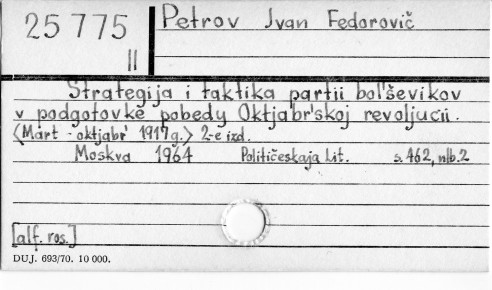 25 775
II
Petrov Ivan Fedorovič
Strategija i taktika partii bol'ševikov
v podgotovke pobedy Oktjabr'skoj revoljucii.
<Mart - oktjabr' 1917 g.> 2-e izd.
Moskva 1964 Političeskaja Lit. s. 462, nlb. 2
[alf. ros.]
DUJ. 693/70. 10 000.